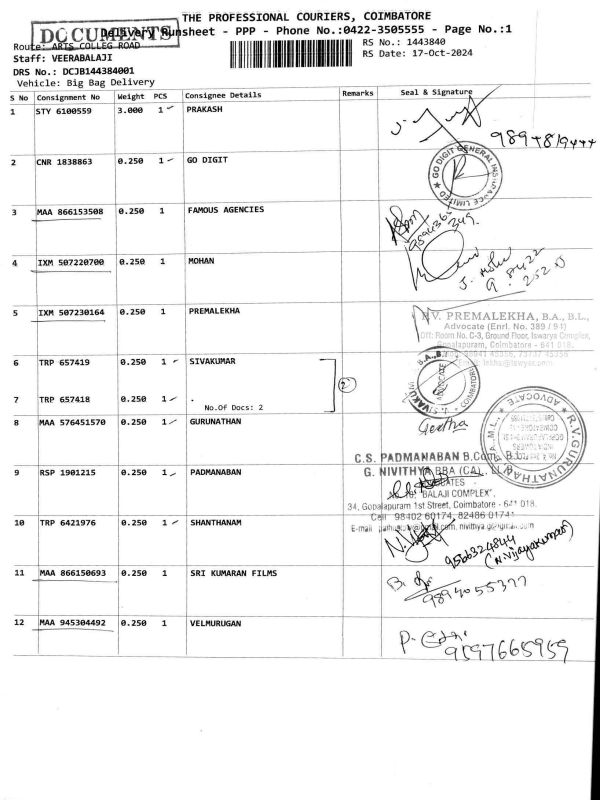 THE PROFESSIONAL COURIERS, COIMBATORE
DOCUMENTS
Delivery Runsheet - PPP - Phone No.:0422-3505555 - Page No.:1
Route: ARTS COLLEG ROAD
RS No.: 1443840
Staff: VEERABALAJI
RS Date: 17-Oct-2024
DRS No.: DCJB144384001
Vehicle: Big Bag Delivery
S No Consignment No Weight PCS Consignee Details Remarks Seal & Signature
1 STY 6100559 3.000 1 PRAKASH
2 CNR 1838863 0.250 1 GO DIGIT
GO DIGIT GENERAL INSURANCE LIMITED
3 MAA 866153508 0.250 1 FAMOUS AGENCIES
4 IXM 507220700 0.250 1 MOHAN
5 IXM 507230164 0.250 1 PREMALEKHA
PREMALEKHA, B.A., B.L.,
Advocate (Enrl. No. 389 / 91)
Off: Room No. C-3, Ground Floor, Iswarya Complex,
Gopalapuram, Coimbatore - 641 018.
6 TRP 657419 0.250 1 SIVAKUMAR
7 TRP 657418 0.250 1 .
No.Of Docs: 2
2
ADVOCATE
COIMBATORE
8 MAA 576451570 0.250 1 GURUNATHAN
Geetha
R.V.GURUNATHAN
ADVOCATE
C.S. PADMANABAN B.Com., B.L.,
9 RSP 1901215 0.250 1 PADMANABAN
G. NIVITHYA BBA (CA)., LL.B.
"BALAJI COMPLEX",
34, Gopalapuram 1st Street, Coimbatore - 641 018.
Cell: 98402 60174, 82486 01741
10 TRP 6421976 0.250 1 SHANTHANAM
9566324844
(N.Vijayakumar)
11 MAA 866150693 0.250 1 SRI KUMARAN FILMS
9894055377
12 MAA 945304492 0.250 1 VELMURUGAN
9597665959